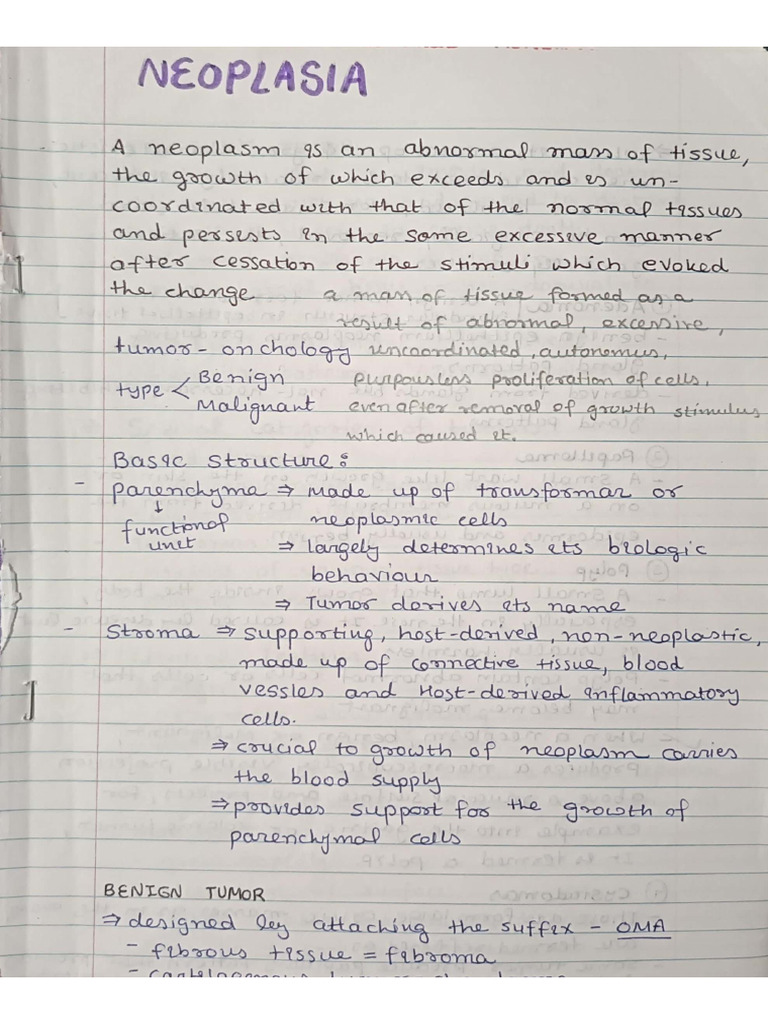 NEOPLASIA
A neoplasm is an abnormal mass of tissue,
the growth of which exceeds and is un-
coordinated with that of the normal tissues
and persests in the same excessive manner
after cessation of the stimuli which evoked
the change a mass of tissue formed as a
result of abnormal, excessive,
tumor - onchology uncoordinated, autonomus,
type < Benign plurpousless proliferation of cells,
Malignant even after removal of growth stimulus
which caused it.
Basic structure:
- parenchyma ⇒ Made up of transformar or
↓ neoplasmic cells
function of unit
⇒ largely determines its biologic
behaviour
⇒ Tumor derives its name
- Stroma ⇒ supporting, host-derived, non-neoplastic,
made up of connective tissue, blood
vessles and Host-derived inflammatory
cells.
⇒ crucial to growth of neoplasm carries
the blood supply
⇒ provides support for the growth of
parenchymal cells
BENIGN TUMOR
⇒ designed by attaching the suffix - OMA
- fibrous tissue = fibroma